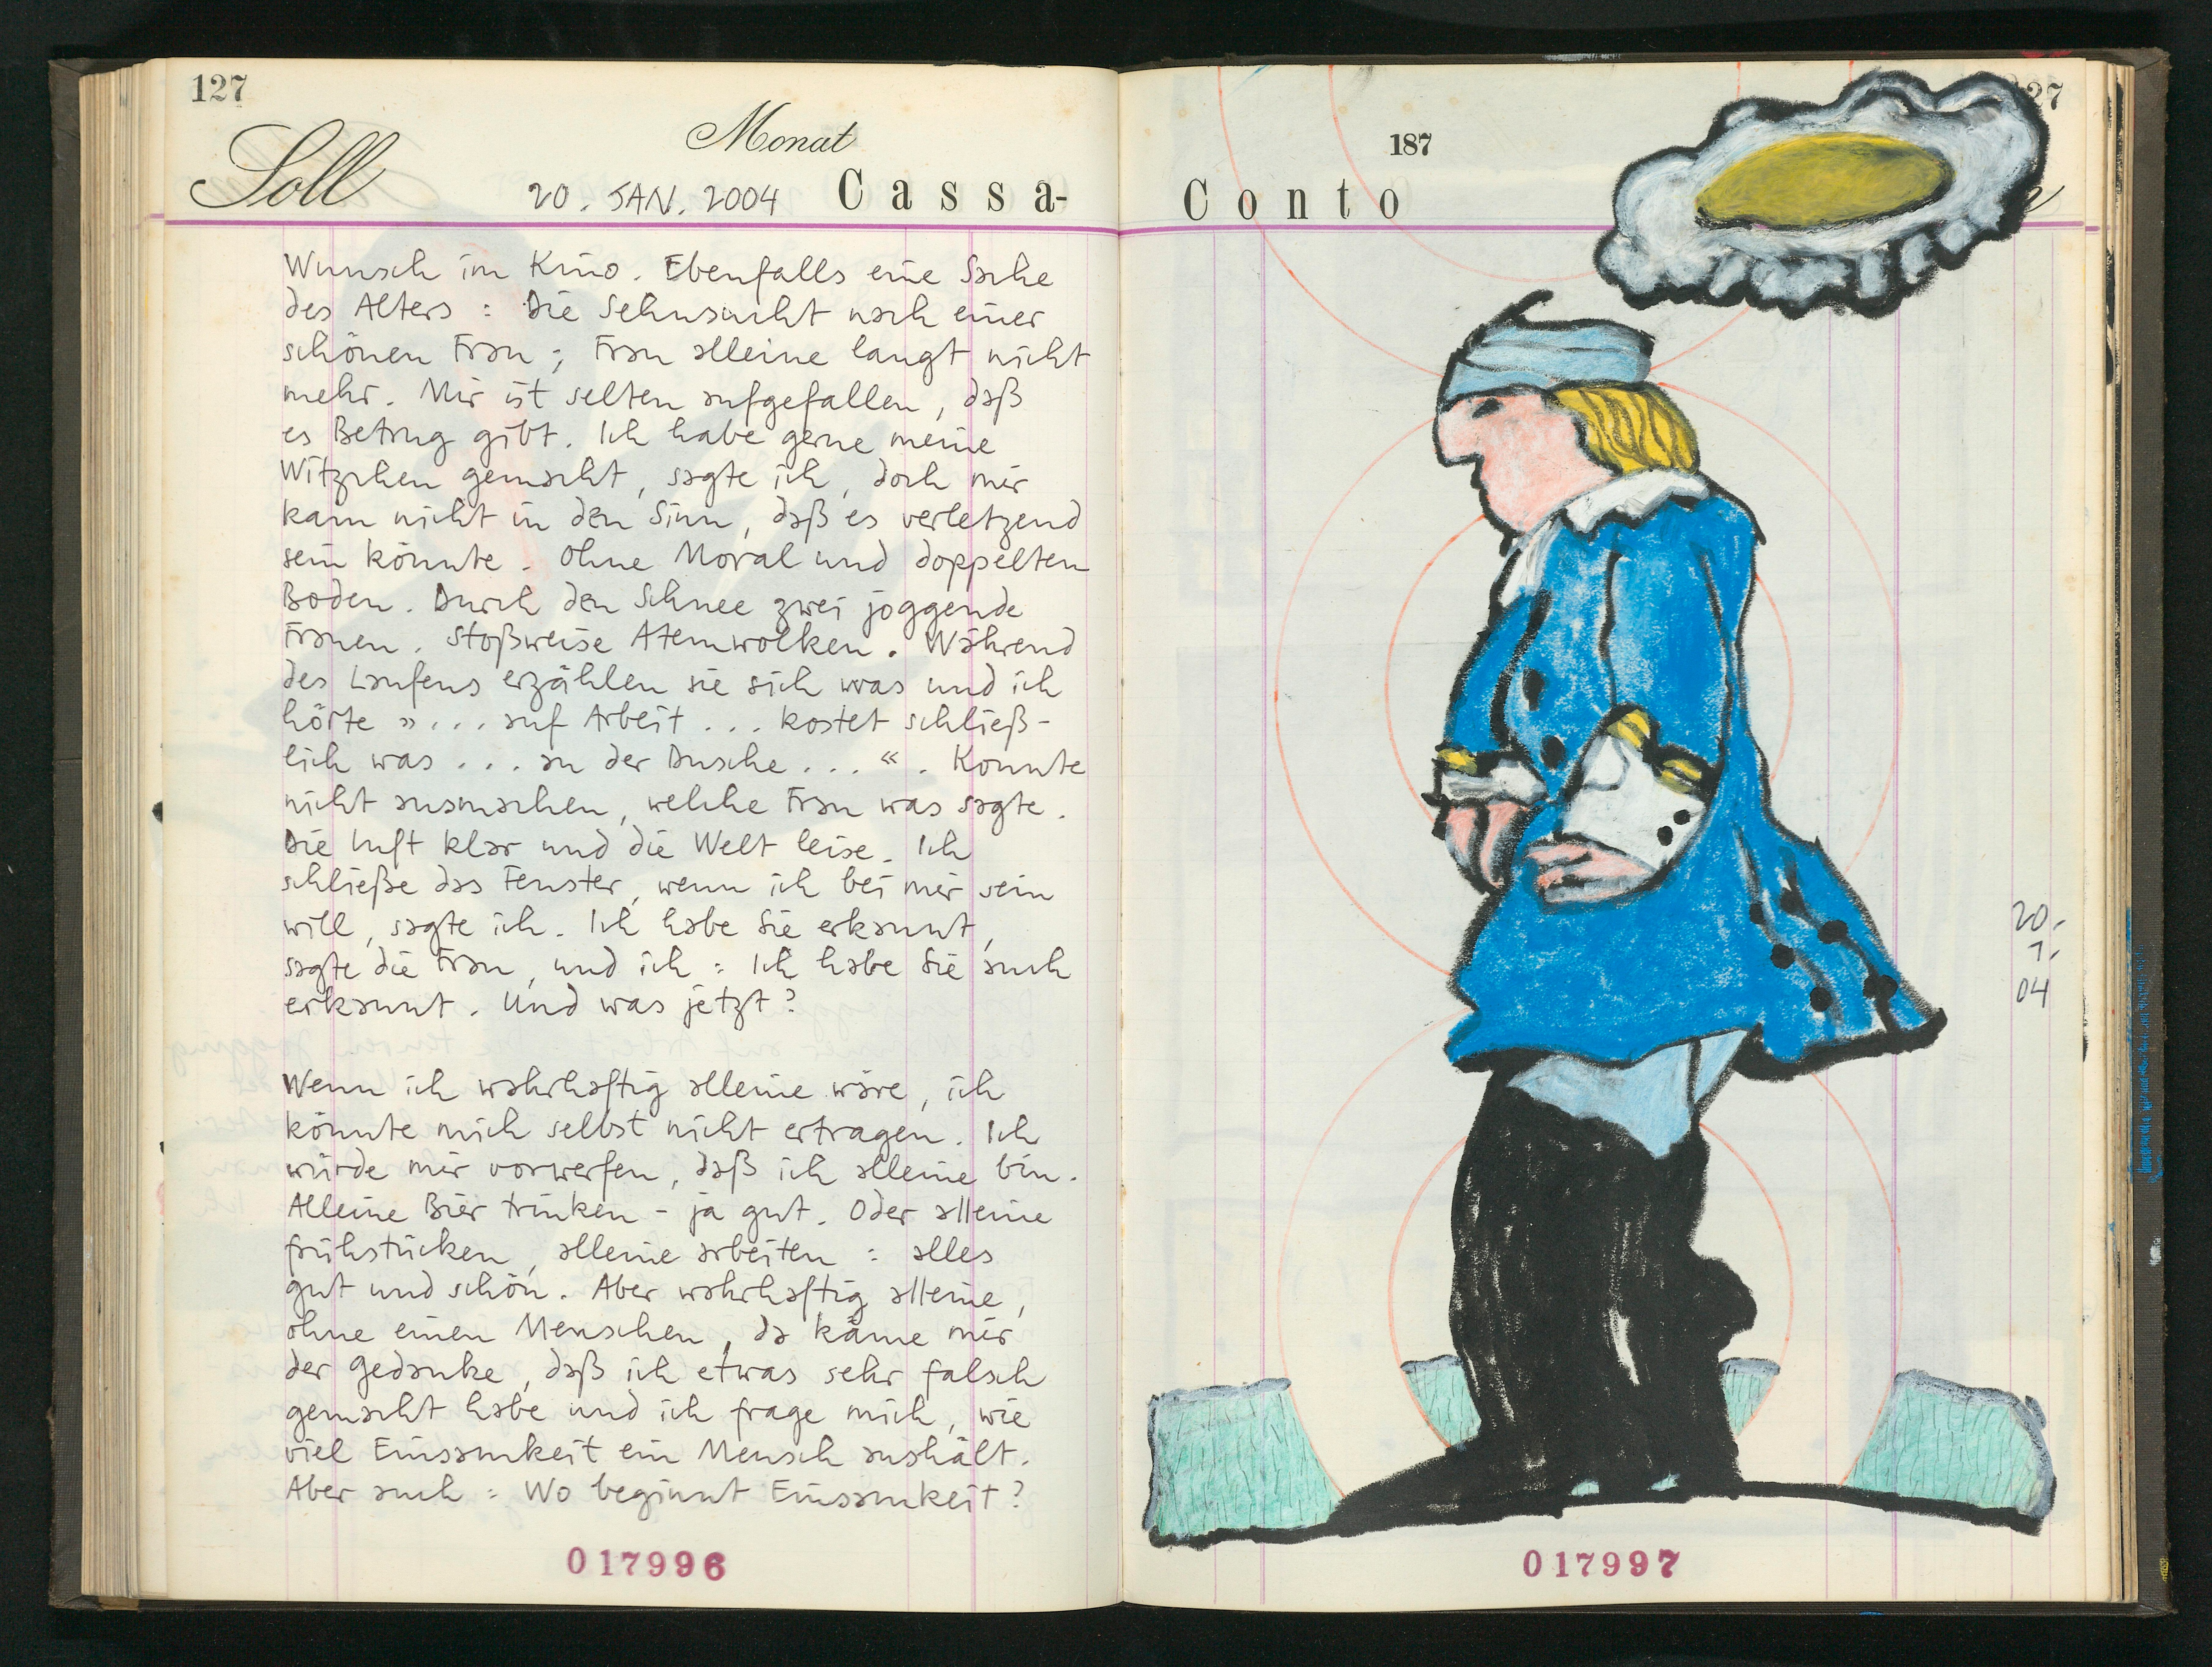 127
Soll
Monat
20. JAN. 2004 Cassa-
Wunsch im Kino. Ebenfalls eine Sache
des Alters: Die Sehnsucht nach einer
schönen Frau; Frau alleine langt nicht
mehr. Mir ist selten aufgefallen, daß
es Betrug gibt. Ich habe gerne meine
Witzchen gemacht, sagte ich, doch mir
kam nicht in den Sinn, daß es verletzend
sein könnte. Ohne Moral und doppelten
Boden. Durch den Schnee zwei joggende
Frauen. Stoßweise Atemwolken. Während
des Laufens erzählen sie sich was und ich
hörte »... auf Arbeit ... kostet schließ-
lich was ... an der Dusche ...«. Konnte
nicht ausmachen, welche Frau was sagte.
Die Luft klar und die Welt leise. Ich
schließe das Fenster, wenn ich bei mir sein
will, sagte ich. Ich habe Sie erkannt,
sagte die Frau, und ich: Ich habe Sie auch
erkannt. Und was jetzt?
Wenn ich wahrhaftig alleine wäre, ich
könnte mich selbst nicht ertragen. Ich
würde mir vorwerfen, daß ich alleine bin.
Alleine Bier trinken - ja gut. Oder alleine
frühstücken, alleine arbeiten: alles
gut und schön. Aber wahrhaftig alleine,
ohne einen Menschen, da käme mir
der Gedanke, daß ich etwas sehr falsch
gemacht habe und ich frage mich, wie
viel Einsamkeit ein Mensch aushält.
Aber auch: Wo beginnt Einsamkeit?
017996
27
187
Conto
20.
1.
04
017997